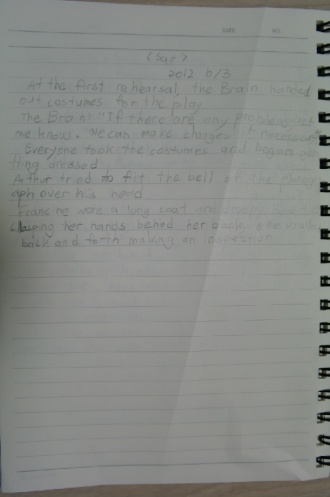 2012 6/3
At the first rehearsal, the Brain handed
out costumes for the play
The Brain: "If there are any problems let
me know. We can make changes
Everyone took the costumes and began get
ting dressed
Arthur tried to fit the bell of the
aph over his head
Francine wore a long coat and
her hands behind her back, she walked
back and forth making an inspection